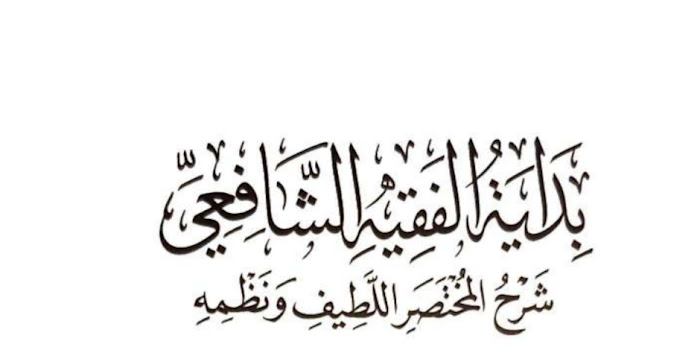 بِدَايَةُ الفَقِيهِ الشَّافِعِيِّ
شَرْحُ المُخْتَصَرِ اللَّطِيفِ وَنَظْمِهِ